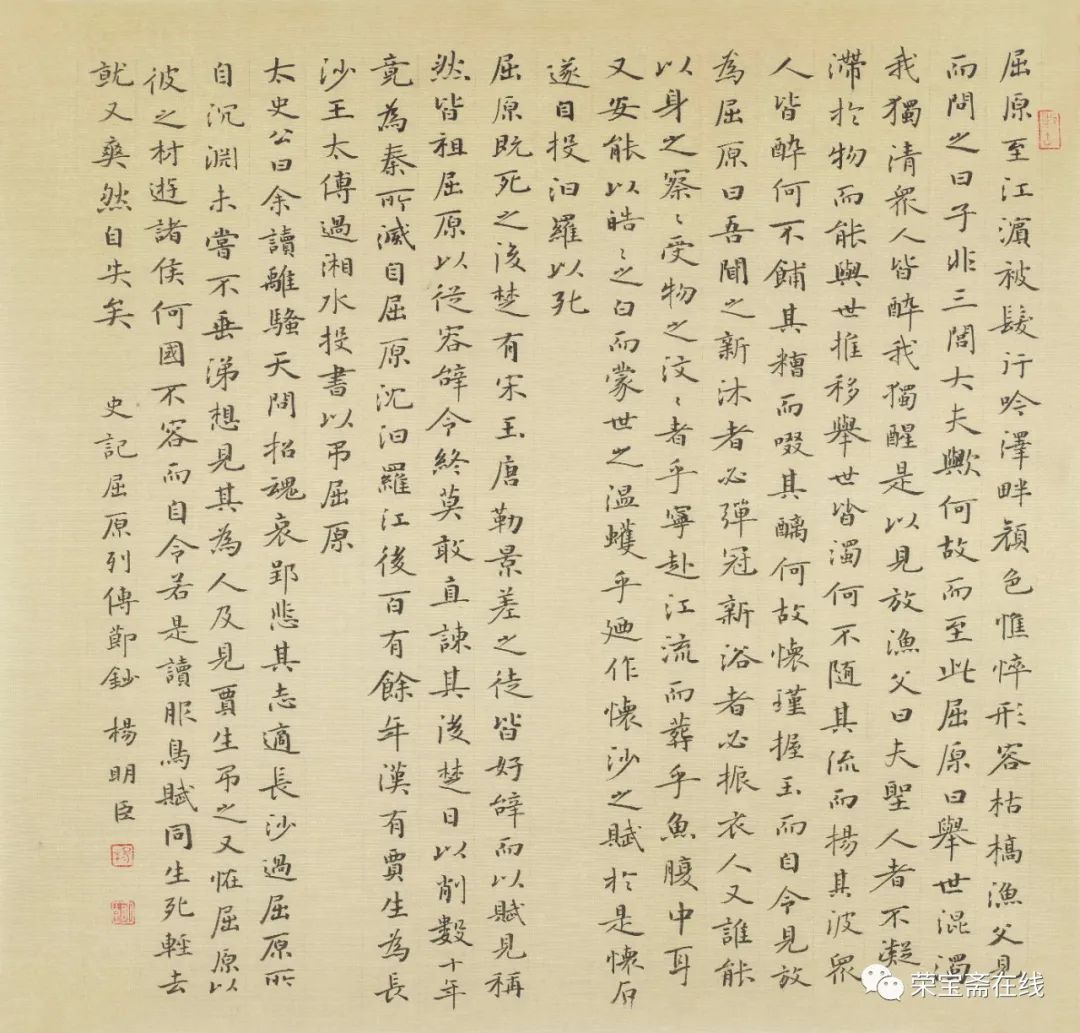 屈原至江濵被髮行吟澤畔顏色憔悴形容枯槁漁父見
而問之曰子非三閭大夫歟何故而至此屈原曰舉世混濁
我獨清衆人皆醉我獨醒是以見放漁父曰夫聖人者不凝
滯於物而能與世推移舉世皆濁何不隨其流而揚其波衆
人皆醉何不餔其糟而啜其醨何故懷瑾握玉而自令見放
為屈原曰吾聞之新沐者必彈冠新浴者必振衣人又誰能
以身之察〻受物之汶〻者乎寧赴江流而葬乎魚腹中耳
又安能以皓〻之白而蒙世之温蠖乎廼作懷沙之賦於是懷石
遂自投汨羅以死
屈原既死之後楚有宋玉唐勒景差之徒皆好辭而以賦見稱
然皆祖屈原以從容辭令終莫敢直諫其後楚日以削數十年
竟為秦所滅自屈原沉汨羅江後百有餘年漢有賈生為長
沙王太傅過湘水投書以弔屈原
太史公曰余讀離騷天問招魂哀郢悲其志適長沙過屈原所
自沉淵未嘗不垂涕想見其為人及見賈生弔之又恠屈原以
彼之材遊諸侯何國不容而自令若是讀服鳥賦同生死輕去
就又爽然自失矣 史記屈原列傳節鈔 楊明臣
荣宝斋在线